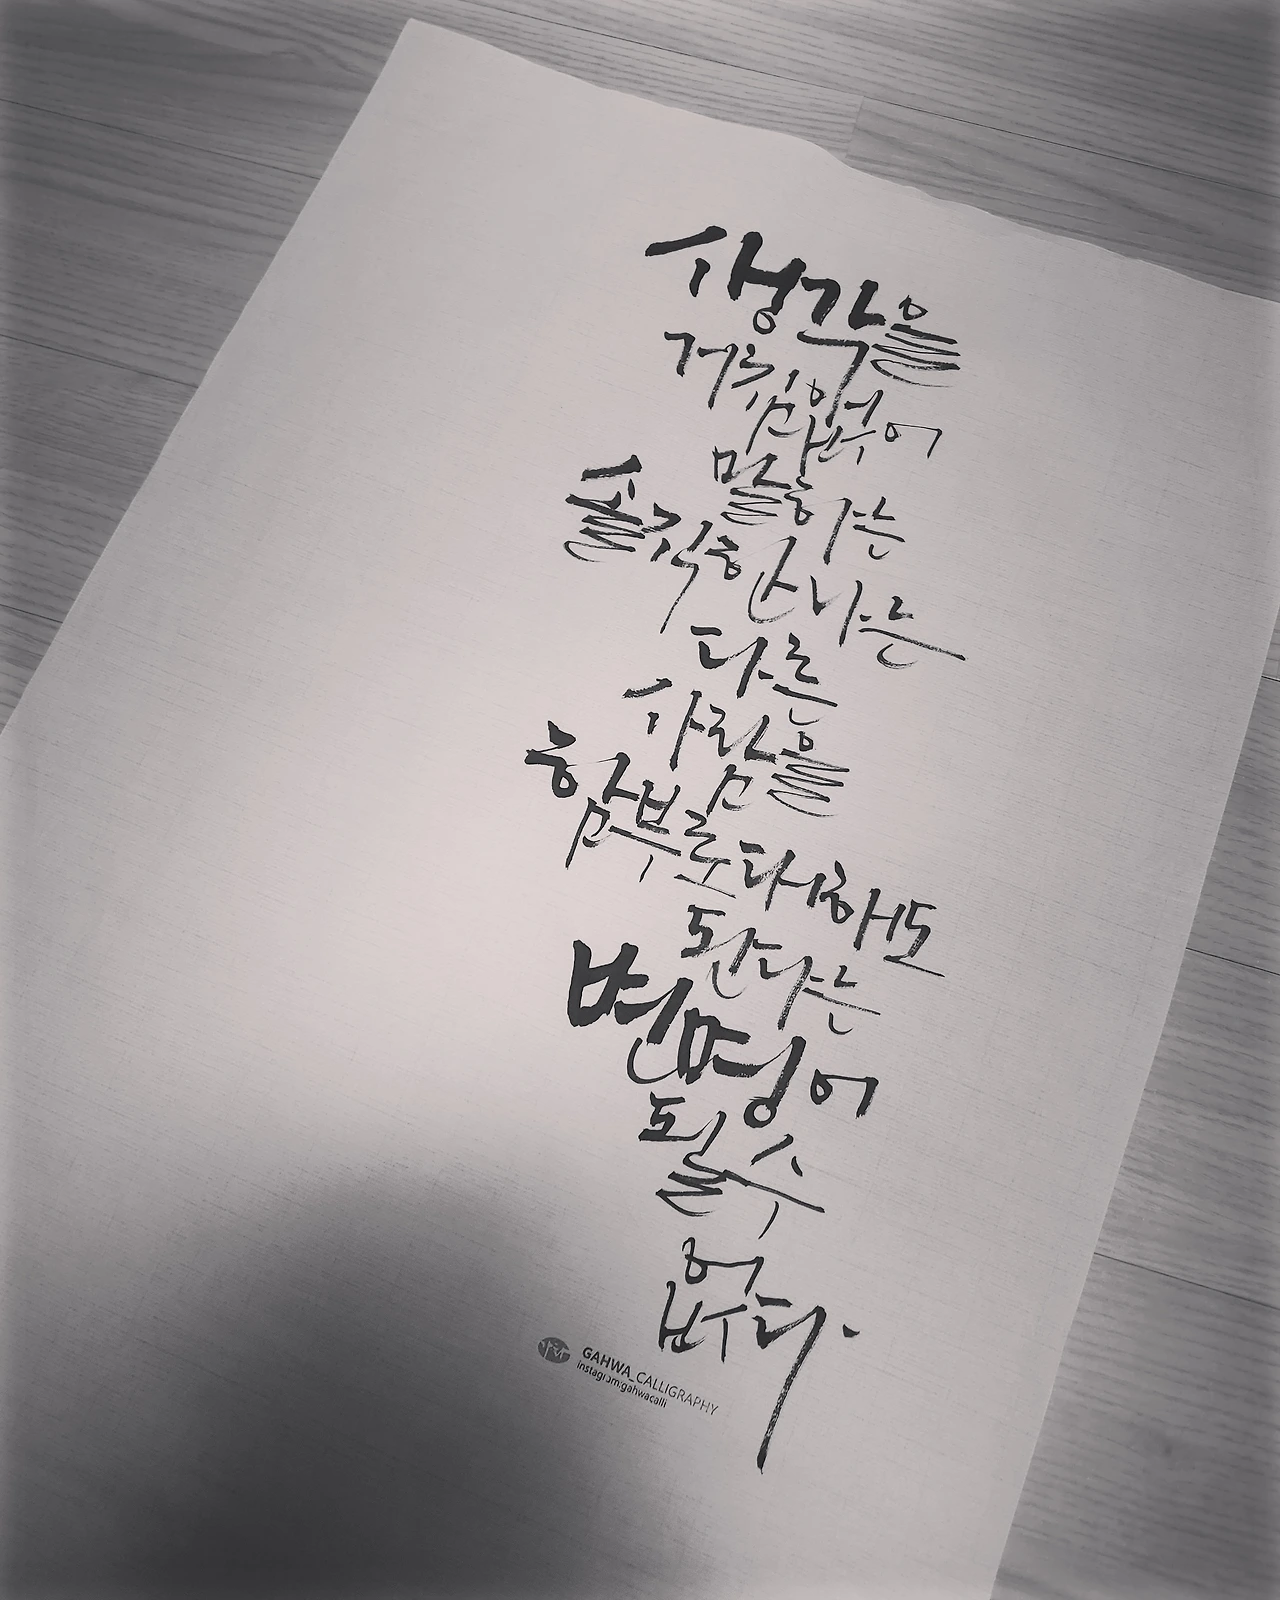 생각을
거침없이
말하는
솔직한 나는
다른
사람을
함부로 대해도
된다는
변명이
될 수
없다.
가화
GAHWA_CALLIGRAPHY
instagram:gahwacalli